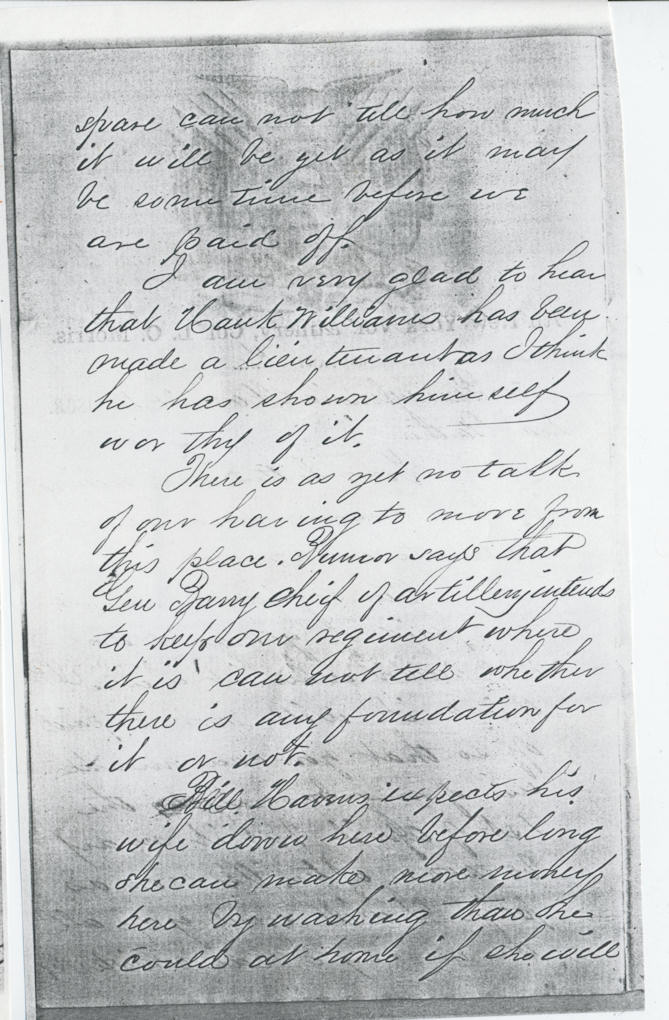 spare can not tell how much
it will be yet as it may
be some time before we
are paid off.
I am very glad to hear
that Hank Williams has been
made a lieutenant as I think
he has shown himself
worthy of it.
There is as yet no talk
of our having to move from
this place. Rumor says that
Gen Barry chief of artillery intends
to keep our regiment where
it is can not tell whether
there is any foundation for
it or not.
Bill expects his
wife down here before long
she can make more money
here by washing than she
could at home if she will